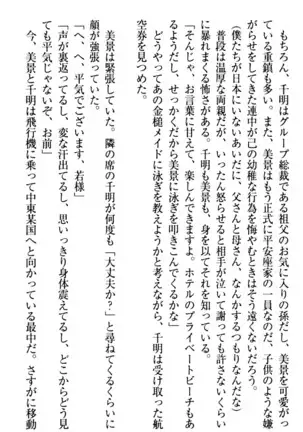 もちろん、千明はグループ総裁である祖父のお気に入りの孫だし、美景を可愛がっ
ている重鎮も多い。また、美景はもう正式に平安座家の一員なのだ、子供のような嫌
がらせをしてきた連中が己の幼稚な行為を悔やむときはそう遠くないだろう。
（僕たちが日本にいないあいだに、父さんと母さん、なんかするつもりなんだな）
　普段は温厚な両親だが、いったん怒らせると相手が泣いて謝っても許さないくらい
に暴れまくる怖さがある。千明も美景も、身を以てそれを知っている。
「そんじゃ、お言葉に甘えて、楽しんできますよ。ホテルのプライベートビーチもあ
るようだし、せっかくだから美景に泳ぎを叩きこんでくるかな」
　どうやってあの金槌メイドに泳ぎを教えようかと考えながら、千明は受け取った航
空券を見つめた。
　美景は緊張していた。隣の席の千明が何度も「大丈夫か？」と尋ねてくるくらいに
顔が強張っていた。
「へ、へ、平気でございます、若様」
「声が裏返ってるし、変な汗出てるし、思いっきり身体震えてるし、どこからどう見
ても平気じゃないぞ、お前」
　今、美景と千明は飛行機に乗って中東某国へと向かっている最中だ。さすがに移動